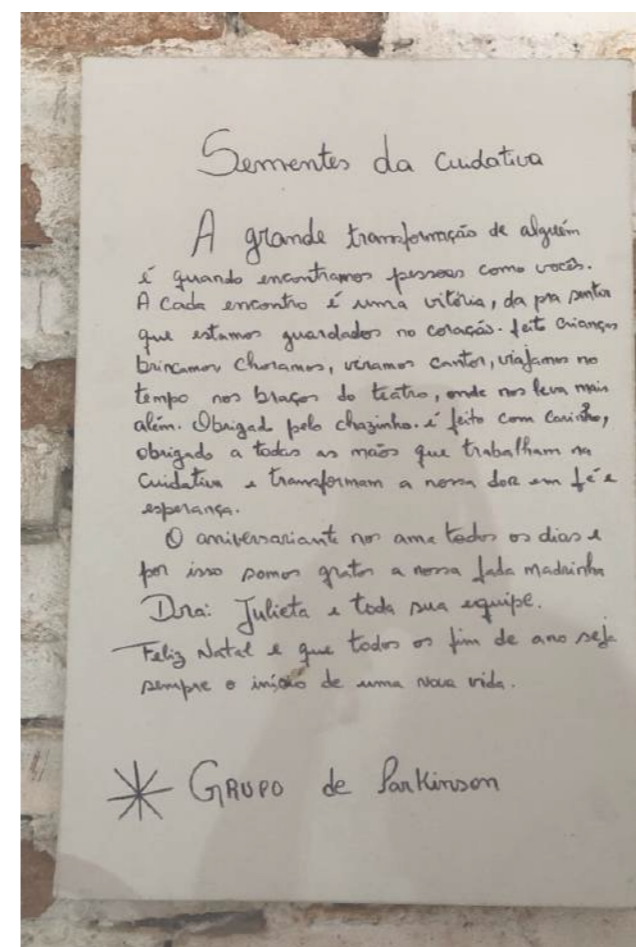 Sementes da Cuidativa
A grande transformação de alguém
é quando encontramos pessoas como vocês.
A cada encontro é uma vitória, da pra sentir
que estamos guardados no coração. feito crianças
brincamos choramos, viramos cantor, viajamos no
tempo nos braços do teatro, onde nos leva mais
além. Obrigad pelo chazinho. é feito com carinho,
obrigado a todas as mãos que trabalham na
Cuidativa e transformam a nossa dor em fé e
esperança.
O aniversariante nos ama todos os dias e
por isso somos gratos a nossa fada madrinha
Dra: Julieta e toda sua equipe.
Feliz Natal e que todos os fim de ano seja
sempre o início de uma nova vida.
GRUPO de Parkinson